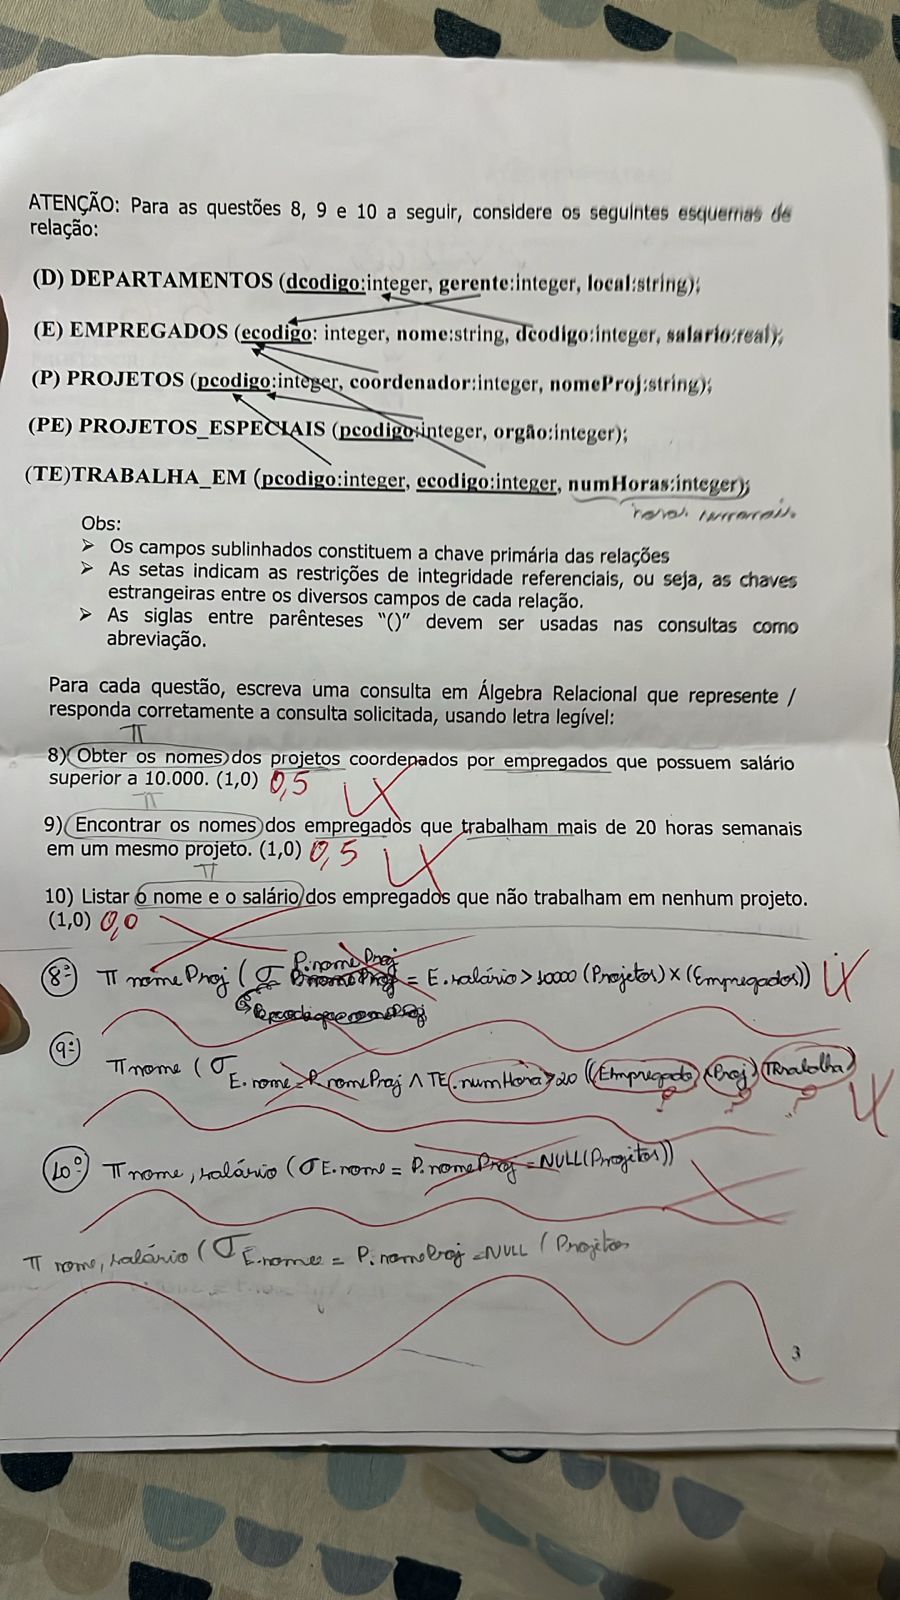 ATENÇÃO: Para as questões 8, 9 e 10 a seguir, considere os seguintes esquemas de
relação:
(D) DEPARTAMENTOS (dcodigo:integer, gerente:integer, local:string);
(E) EMPREGADOS (ecodigo: integer, nome:string, dcodigo:integer, salario:real);
(P) PROJETOS (pcodigo:integer, coordenador:integer, nomeProj:string);
(PE) PROJETOS_ESPECIAIS (pcodigo:integer, orgão:integer);
(TE)TRABALHA_EM (pcodigo:integer, ecodigo:integer, numHoras:integer);
Obs:
➢ Os campos sublinhados constituem a chave primária das relações
➢ As setas indicam as restrições de integridade referenciais, ou seja, as chaves
estrangeiras entre os diversos campos de cada relação.
➢ As siglas entre parênteses "()" devem ser usadas nas consultas como
abreviação.
Para cada questão, escreva uma consulta em Álgebra Relacional que represente /
responda corretamente a consulta solicitada, usando letra legível:
π
8) Obter os nomes dos projetos coordenados por empregados que possuem salário
superior a 10.000. (1,0) 0,5
π
9) Encontrar os nomes dos empregados que trabalham mais de 20 horas semanais
em um mesmo projeto. (1,0) 0,5
π
10) Listar o nome e o salário dos empregados que não trabalham em nenhum projeto.
(1,0) 0,0
P.nomeProj
8ª π nomeProj (σ = E.salário > 10000 (Projetos) x (Empregados))
9ª π nome (σ E.nome = P.nomeProj ∧ TE.numHora > 20 ((Empregado x Proj) Trabalha)
? ? ?
10ª π nome, salário (σ E.nome = P.nomeProj = NULL (Projetos))
π nome, salário (σ E.nome = P.nomeProj = NULL (Projetos
3